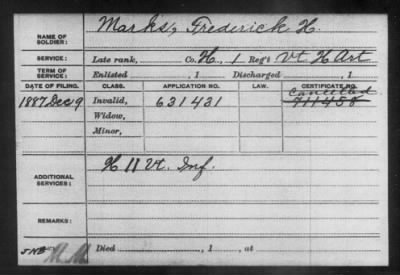 NAME OF SOLDIER: Marks, Frederick H.
SERVICE: Late rank, Co. H, 1 Reg't Vt. H Art
TERM OF SERVICE: Enlisted , 1 Discharged , 1
DATE OF FILING. CLASS. APPLICATION NO. LAW. CERTIFICATE NO.
Cancelled
1887 Dec 9 Invalid, 631431 711458
Widow,
Minor,
ADDITIONAL SERVICES: H 11 Vt. Inf.
REMARKS:
Died , 1 , at